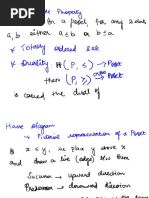 Property
In a poset for any a,b
a, b either a ≤ b or b ≤ a
* Totally ordered set
* Duality (P, ≤) → Poset
then (P, ≥) → Poset
is called the dual of
Hasse Diagram
→ Pictorial representation of a Poset
x ≤ y, we place y above x
and draw a line (edge) b/w them
Successor → upward direction
Predecessor → downward direction